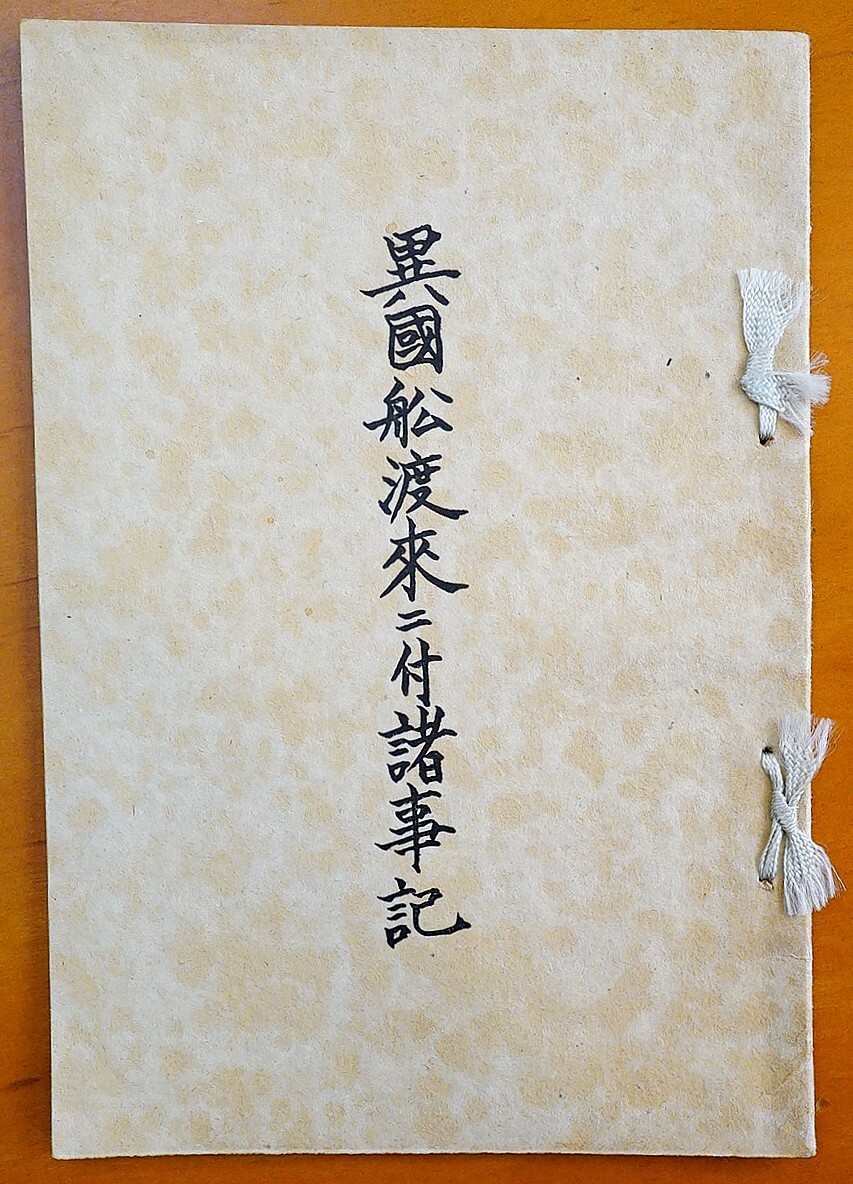 異國舩渡來ニ付諸事記